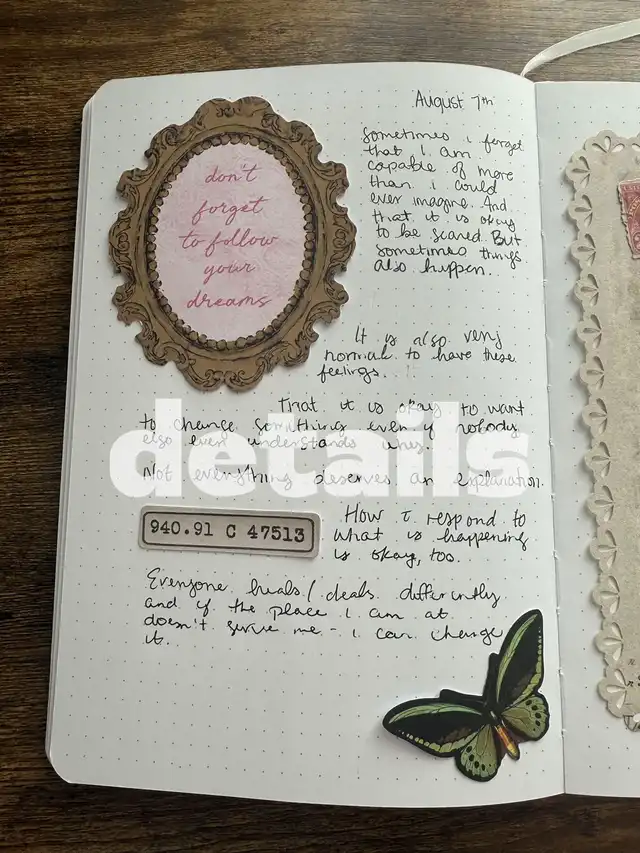 August 7th
don't
forget
to follow
your
dreams
sometimes i forget
that I am
capable of more
than i could
ever imagine. And
that it is okay
to be scared. But
sometimes things
also happen.
It is also very
normal to have these
feelings.
That it is okay to want
to change something even if nobody
else even understands why.
details
Not everything deserves an explanation.
940.91 C 47513
How I respond to
what is happening
is okay, too.
Everyone heals/deals differently
and if the place i am at
doesn't serve me - i can change
it.